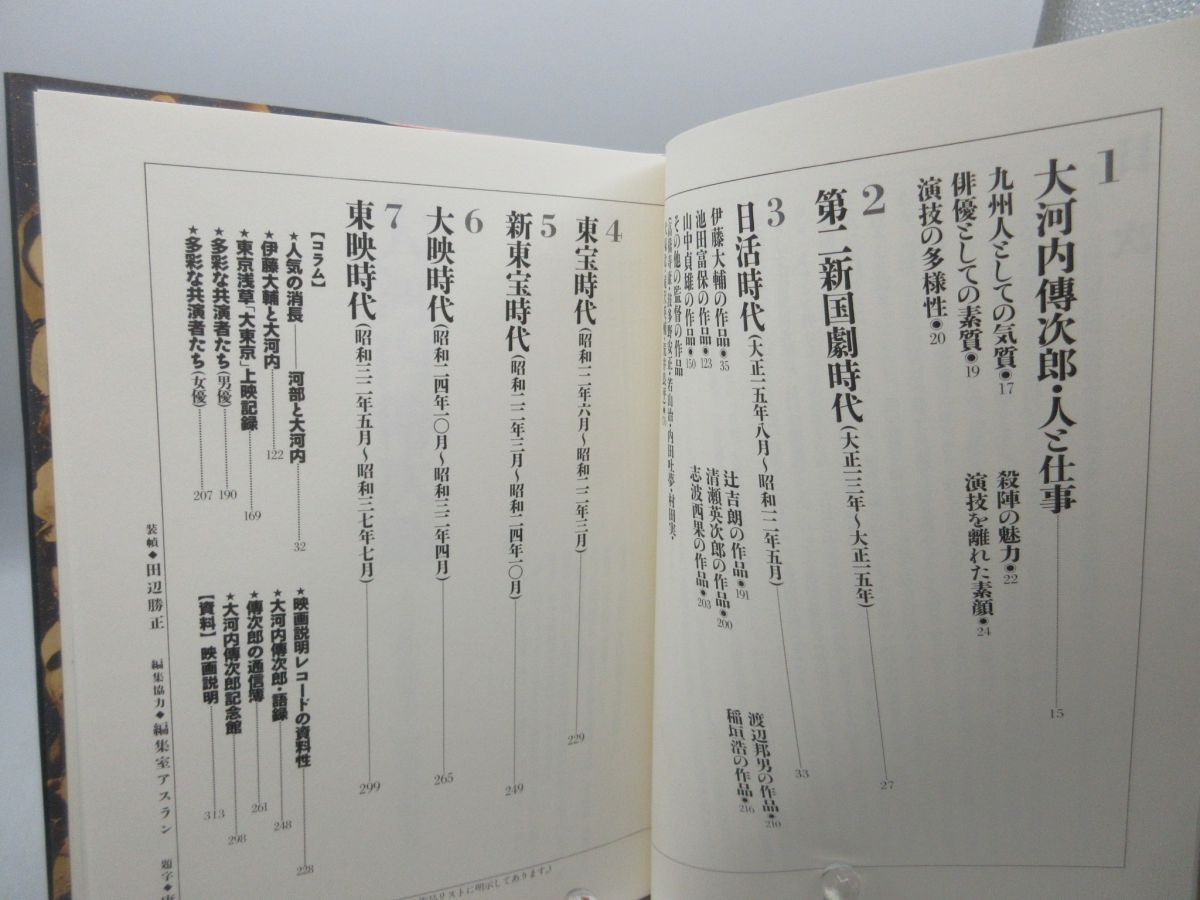 1
大河内傳次郎・人と仕事 15
九州人としての気質●17
俳優としての素質●19
演技の多様性●20
殺陣の魅力●22
演技を離れた素顔●24
2
第二新国劇時代(大正一三年〜大正一五年) 27
3
日活時代(大正一五年八月〜昭和一二年五月) 33
伊藤大輔の作品●35
池田富保の作品●123
山中貞雄の作品●150
その他の監督の作品
辻吉朗の作品●191
清瀬英次郎の作品●200
志波西果の作品●203
渡辺邦男の作品●210
稲垣浩の作品●216
4
東宝時代(昭和一二年六月〜昭和二二年三月) 229
5
新東宝時代(昭和二二年三月〜昭和二四年一〇月) 249
6
大映時代(昭和二四年一〇月〜昭和三二年四月) 265
7
東映時代(昭和三二年五月〜昭和三七年七月) 299
【コラム】
★人気の消長——河部と大河内 32
★伊藤大輔と大河内 122
★東京浅草「大東京」上映記録 169
★多彩な共演者たち(男優) 190
★多彩な共演者たち(女優) 207
★映画説明レコードの資料性 228
★大河内傳次郎・語録 248
★傳次郎の通信簿 261
★大河内傳次郎記念館 298
【資料】映画説明 313
装幀◆田辺勝正 編集協力◆編集室アスラン 題字◆
リストに明示してあります。)